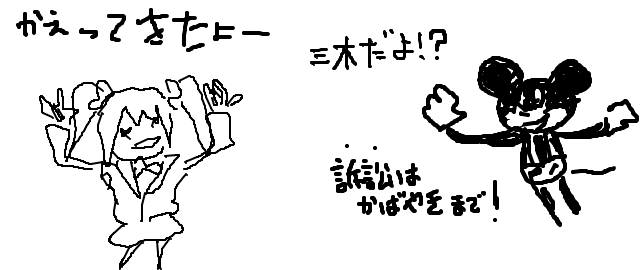 かえってきたよー
三木だよ!?
訴訟は
かばやきまで!